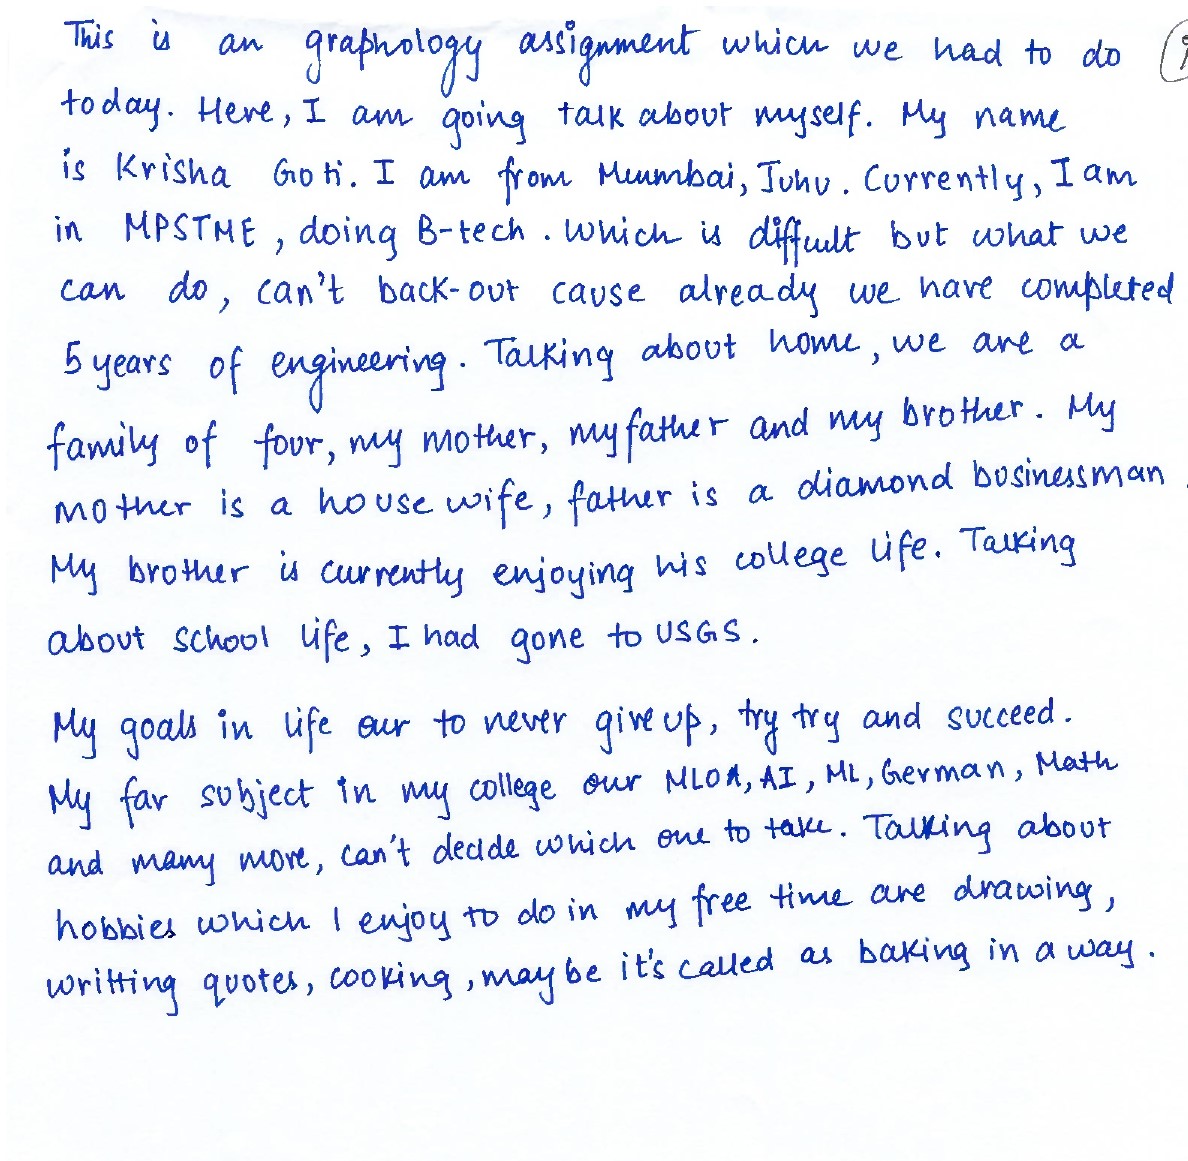 This is an graphology assignment which we had to do
today. Here, I am going talk about myself. My name
is Krisha Goti. I am from Muumbai, Juhu. Currently, I am
in MPSTME, doing B-tech. Which is diffiult but what we
can do, can't back-out cause already we have completed
5 years of engineering. Talking about home, we are a
family of four, my mother, my father and my brother. My
mother is a house wife, father is a diamond businessman.
My brother is currently enjoying his college life. Talking
about school life, I had gone to USGS.
My goals in life our to never give up, try try and succeed.
My fav subject in my college our MLOA, AI, ML, German, Math
and many more, can't decide which one to take. Talking about
hobbies which I enjoy to do in my free time are drawing,
writting quotes, cooking, maybe it's called as baking in a way.